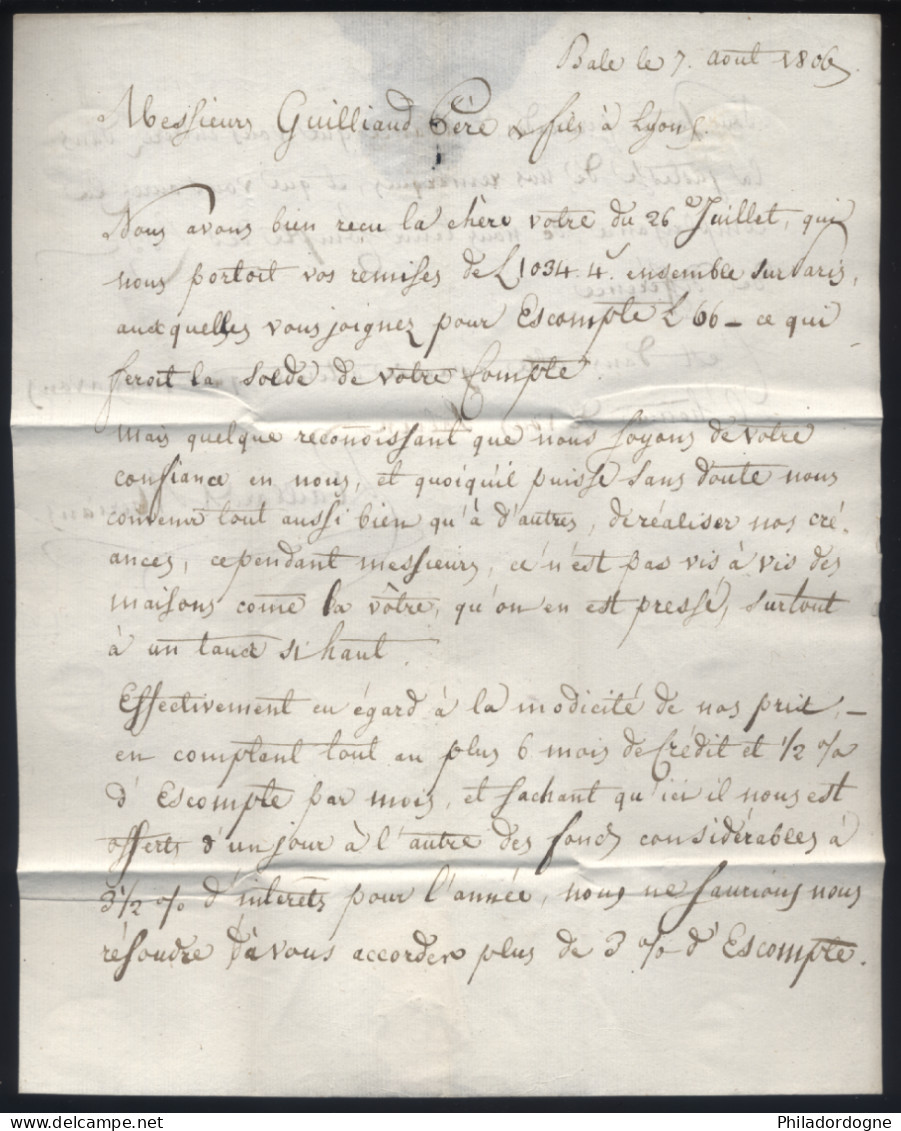 Bale le 7. aout 1806
Messieurs Guilliaud Père & fils à Lyon
Nous avons bien recu la chère votre du 26 Juillet, qui
nous portoit vos remises de L 1034. 4. ensemble sur Paris,
auxquelles vous joignez pour Escompte L 66 – ce qui
feroit la solde de votre Compte.
Mais quelque reconoissant que nous soyons de votre
confiance en nous, et quoiqu'il puisse sans doute nous
convenir tout aussi bien qu'à d'autres, de réaliser nos cré-
ances, cependant messieurs, ce n'est pas vis à vis des
maisons come la vôtre, qu'on en est pressé, surtout
à un taux si haut.
Effectivement eu égard à la modicité de nos prix, –
en comptant tout au plus 6 mois de Crédit et 1/2 %
d'Escompte par mois, et sachant qu'ici il nous est
offerts d'un jour à l'autre des fonds considérables à
3 1/2 % d'interets pour l'année, nous ne saurions nous
résoudre à vous accorder plus de 3 % d'Escompte.
Philadordogne